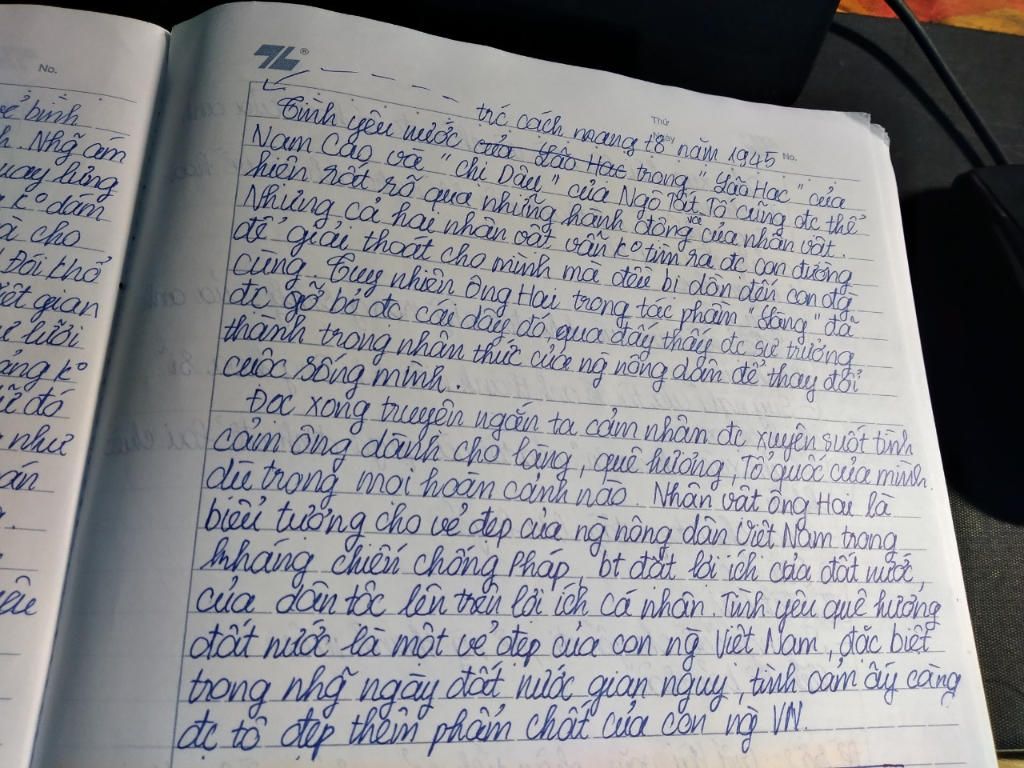 No.
ẻ bình
h. Nhg~ ám
uay lưng
kº dám
à cho
Đói khổ
iệt gian
lưới
ảng kº
đó
như
án
TL®
Thứ
Ngày
No.
trc cách mạng t8 năm 1945
Tình yêu nước của Lão Hạc trong "Lão Hạc" của
Nam Cao và "Chị Dậu" của Ngô Tất Tố cũng đc thể
hiện rất rõ qua những hành động của nhân vật.
Nhưng cả hai nhân vật vẫn kº tìm ra đc con đường
để giải thoát cho mình mà đều bị dồn đến con đg
cùng. Tuy nhiên ông Hai trong tác phẩm "Làng" đã
đc gỡ bỏ đc cái dây đó, qua đấy thấy đc sự trưởng
thành trong nhận thức của ng nông dân để thay đổi
cuộc sống mình.
Đọc xong truyện ngắn ta cảm nhận đc xuyên suốt tình
cảm ông dành cho làng, quê hương, Tổ quốc của mình
dù trong mọi hoàn cảnh nào. Nhân vật ông Hai là
biểu tượng cho vẻ đẹp của ng nông dân Việt Nam trong
kháng chiến chống Pháp, bt đặt lợi ích của đất nước,
của dân tộc lên trên lợi ích cá nhân. Tình yêu quê hương
đất nước là một vẻ đẹp của con ng Việt Nam, đặc biệt
trong nhg~ ngày đất nước gian nguy, tình cảm ấy càng
đc tô đẹp thêm phẩm chất của con ng VN.